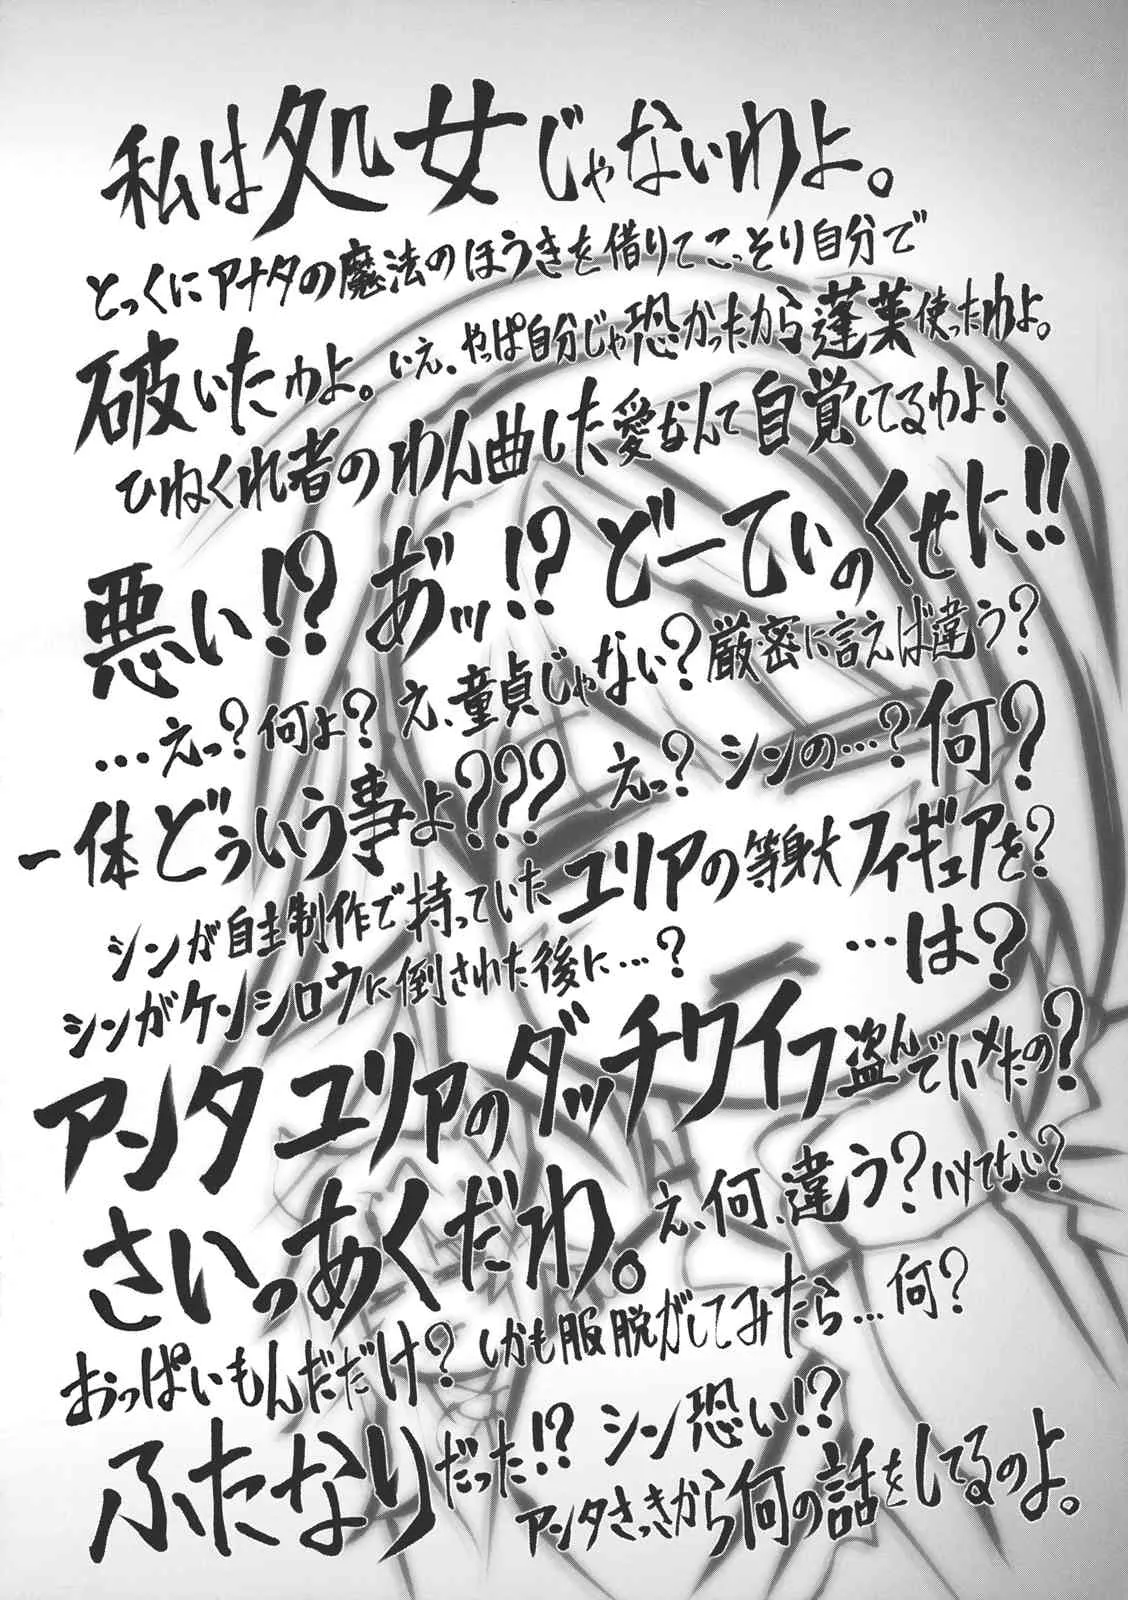 私は処女じゃないわよ。
とっくにアナタの魔法のほうきを借りてこっそり自分で
破いたわよ。いえ、やっぱ自分じゃ恐かったから蓬莱使ったわよ。
ひねくれ者のわん曲した愛なんて自覚してるわよ!
悪い!? あ゛ッ!? どーてぃのくせに!!
…えっ?何よ? え、童貞じゃない?厳密に言えば違う?
一体どぅいう事よ??? えっ? シンの…?何?
シンが自主制作で持っていたユリアの等身大フィギュアを?
シンがケンシロウに倒された後に…? …は?
アンタユリアのダッチワイフ盗んでハメたの?
さいっあくだわ。え、何、違う?ハメてない?
おっぱいもんだだけ? しかも服脱がしてみたら…何?
ふたなりだった!? シン恐い!?
アンタさっきから何の話をしてるのよ。